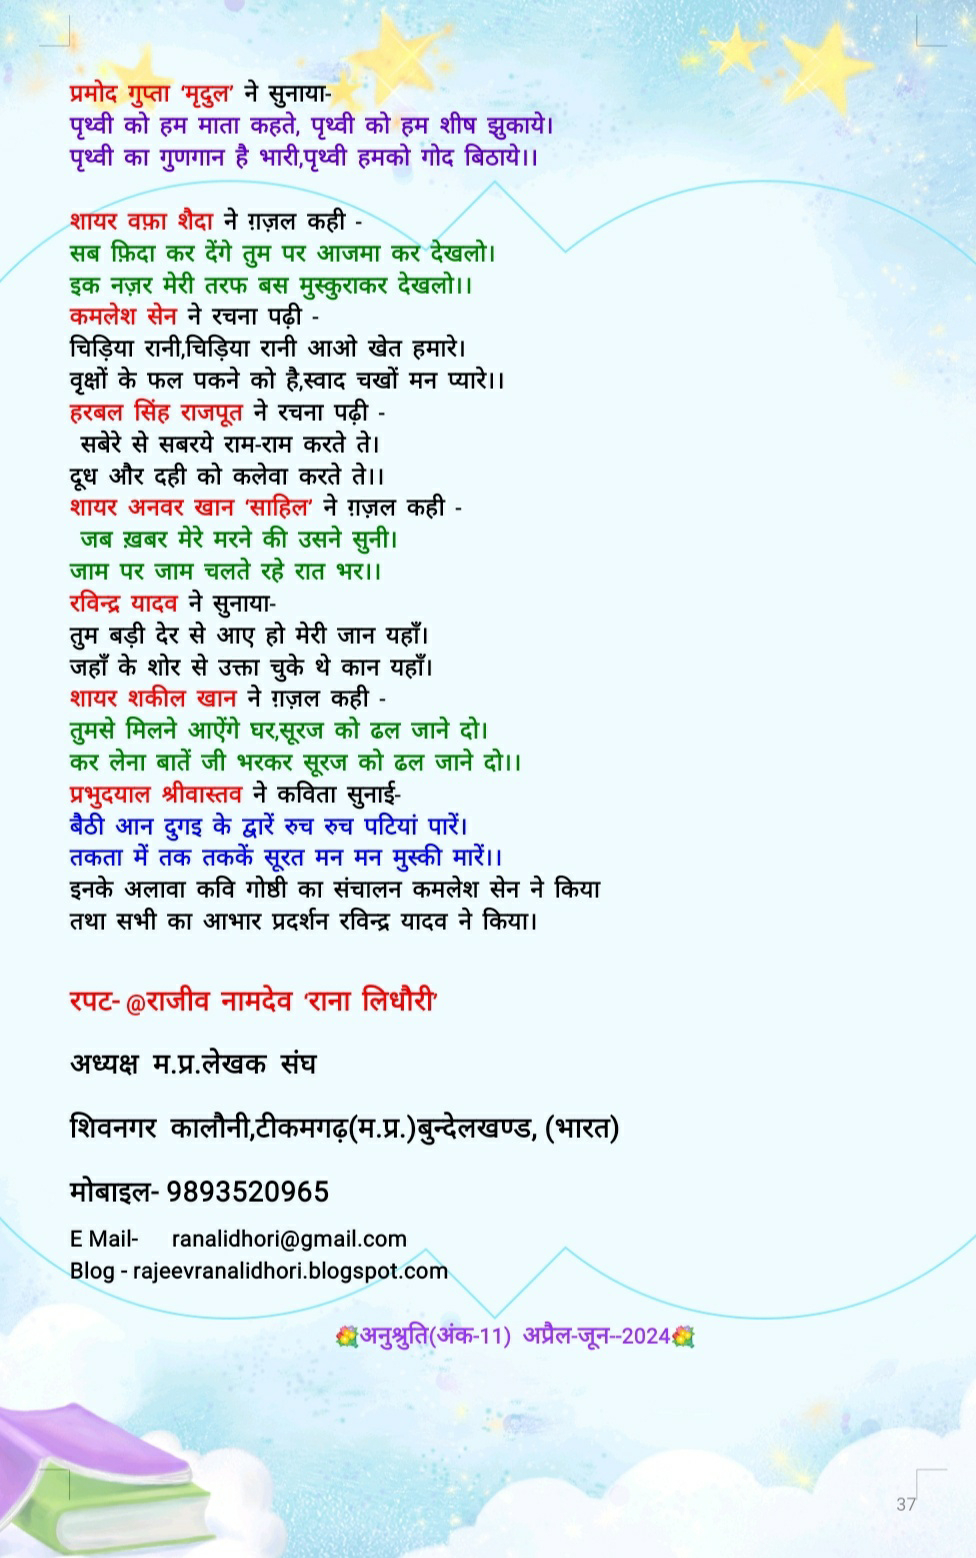 प्रमोद गुप्ता ‘मृदुल’ ने सुनाया-
पृथ्वी को हम माता कहते, पृथ्वी को हम शीष झुकाये।
पृथ्वी का गुणगान है भारी,पृथ्वी हमको गोद बिठाये।।
शायर वफ़ा शैदा ने ग़ज़ल कही -
सब फ़िदा कर देंगे तुम पर आजमा कर देखलो।
इक नज़र मेरी तरफ बस मुस्कुराकर देखलो।।
कमलेश सेन ने रचना पढ़ी -
चिड़िया रानी,चिड़िया रानी आओ खेत हमारे।
वृक्षों के फल पकने को है,स्वाद चखों मन प्यारे।।
हरबल सिंह राजपूत ने रचना पढ़ी -
सबेरे से सबरये राम-राम करते ते।
दूध और दही को कलेवा करते ते।।
शायर अनवर खान ‘साहिल’ ने ग़ज़ल कही -
जब ख़बर मेरे मरने की उसने सुनी।
जाम पर जाम चलते रहे रात भर।।
रविन्द्र यादव ने सुनाया-
तुम बड़ी देर से आए हो मेरी जान यहाँ।
जहाँ के शोर से उक्ता चुके थे कान यहाँ।
शायर शकील खान ने ग़ज़ल कही -
तुमसे मिलने आऐंगे घर,सूरज को ढल जाने दो।
कर लेना बातें जी भरकर सूरज को ढल जाने दो।।
प्रभुदयाल श्रीवास्तव ने कविता सुनाई-
बैठी आन दुगइ के द्वारें रुच रुच पटियां पारें।
तकता में तक तककें सूरत मन मन मुस्की मारें।।
इनके अलावा कवि गोष्ठी का संचालन कमलेश सेन ने किया
तथा सभी का आभार प्रदर्शन रविन्द्र यादव ने किया।
रपट- @राजीव नामदेव ‘राना लिधौरी’
अध्यक्ष म.प्र.लेखक संघ
शिवनगर कालौनी,टीकमगढ़(म.प्र.)बुन्देलखण्ड, (भारत)
मोबाइल- 9893520965
E Mail- ranalidhori@gmail.com
Blog - rajeevranalidhori.blogspot.com
💐अनुश्रुति(अंक-11) अप्रैल-जून--2024💐
37